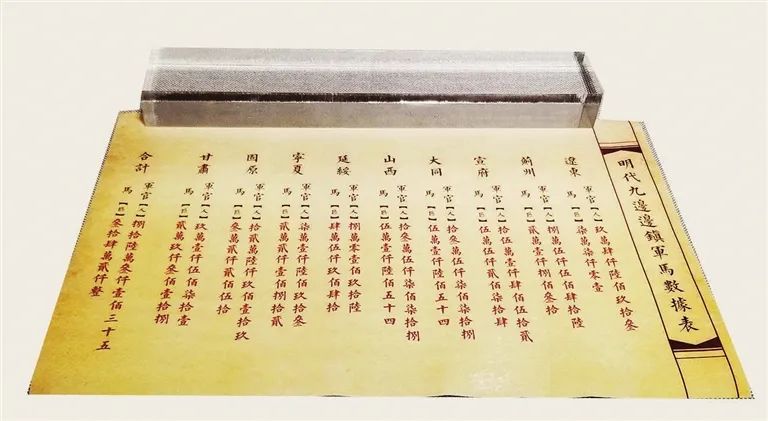 明代九邊邊鎮軍馬數據表
遼東 軍官【人】玖萬肆仟陸佰玖拾叁
馬【匹】柒萬柒仟零壹
薊州 軍官【人】伍萬伍仟伍佰肆拾陸
馬【匹】貳萬壹仟捌佰叁拾
宣府 軍官【人】拾伍萬壹仟肆佰伍拾貳
馬【匹】伍萬伍仟貳佰柒拾肆
大同 軍官【人】拾叁萬伍仟柒佰柒拾捌
馬【匹】伍萬壹仟陸佰五十四
山西 軍官【人】拾叁萬伍仟柒佰柒拾捌
馬【匹】伍萬壹仟陸佰五十四
延綏 軍官【人】捌萬零壹佰玖拾陸
馬【匹】肆萬伍仟玖佰肆拾
寧夏 軍官【人】柒萬壹仟陸佰玖拾叁
馬【匹】貳萬貳仟壹佰捌拾貳
固原 軍官【人】拾貳萬陸仟玖佰壹拾玖
馬【匹】叁萬貳仟貳佰伍拾
甘肅 軍官【人】玖萬壹仟伍佰柒拾壹
馬【匹】貳萬玖仟叁佰壹拾捌
合計 軍官【人】捌拾陸萬叁仟壹佰三十五
馬【匹】叁拾肆萬貳仟整